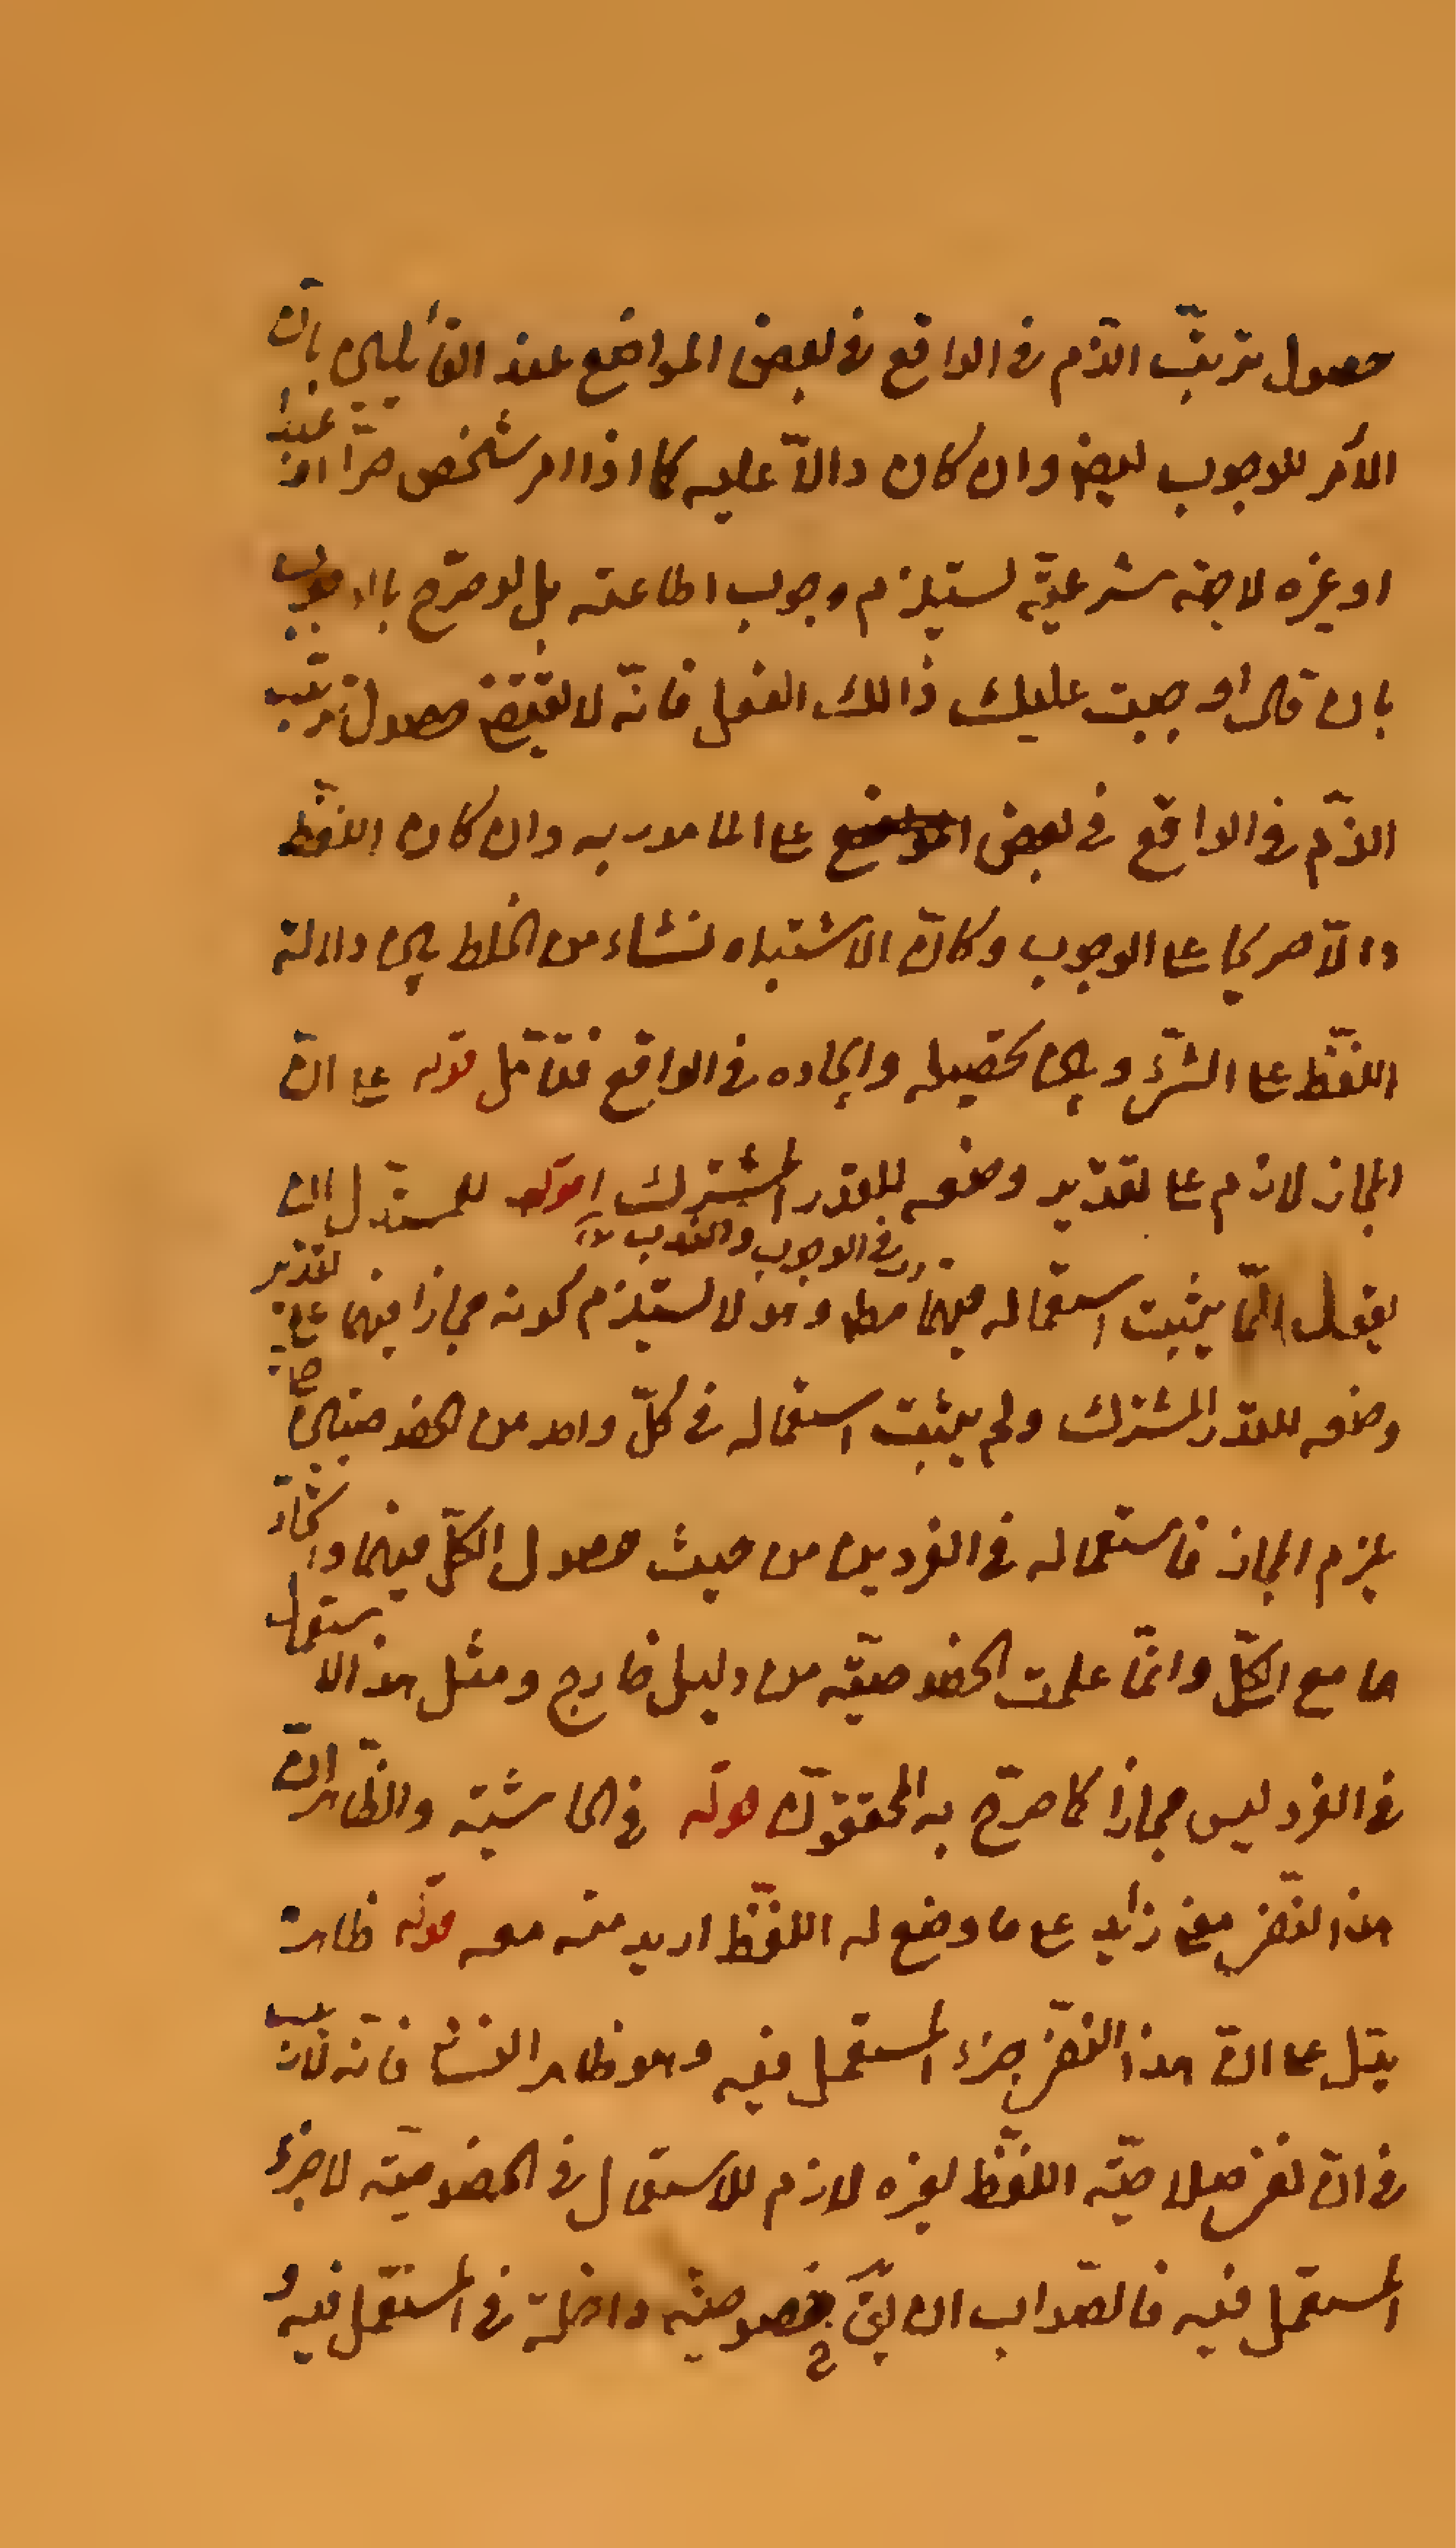 حصول ترتّب الذّم فى الواقع فى بعض المواضع عند القائلين بانّ
الأمر للوجوب ليض وان كان دالّا عليه كما اذا امر شخص حرّا او عبده
او غيره لا جهة شرعيّة يستلزم وجوب اطاعته بل لو صرّح بالوجوب
بان قال اوجبت عليك ذالك الفعل فانّه لا يقتضى حصول ترتّب
الذّم فى الواقع فى بعض المواضع على المامور به وان كان اللفظ
دالّا صريحا على الوجوب وكانّ الاشتباه نشاء من الخلط بين دلالة
اللفّظ على الشئ وبين تحصيله وايجاده فى الواقع فتأمّل قوله على انّ
المجاز لازم على تقدير وضعه للقدر المشترك اه قوله للمستدّل ان
اى فى الوجوب والندب
يقول انّما يثبت استعماله فيهما مط وهو لا يستلزم كونه مجازا فيهما على تقدير
وضعه للقدر المشترك ولم يثبت استعماله فى كلّ واحد من الخصوصيتين حتّى
يلزم المجاز فاستعماله فى الفردين من حيث حصول الكلّى فيهما واتّحاد
هما مع الكلّى وانّما علمت الخصوصيّة من دليل خارج ومثل هذا الاستعمال
فى الفرد ليس مجازا كما صرّح به المحققون قوله فى الحاشية والظّاهر انّ
هذا النفى معنى زايد على ما وضع له اللفّظ اريد منه معه قوله ظاهره
يدل على انّ هذا النفى جزء المستعمل فيه وهو ظاهر الفساد فانّه لا ريب
فى انّ نفى صلاحيّة اللفّظ لغيره لازم للاستعمال فى الخصوصيّة لا جزء
المستعمل فيه فالصّواب ان يقّ خصوصيّة داخلة فى المستعمل فيه و